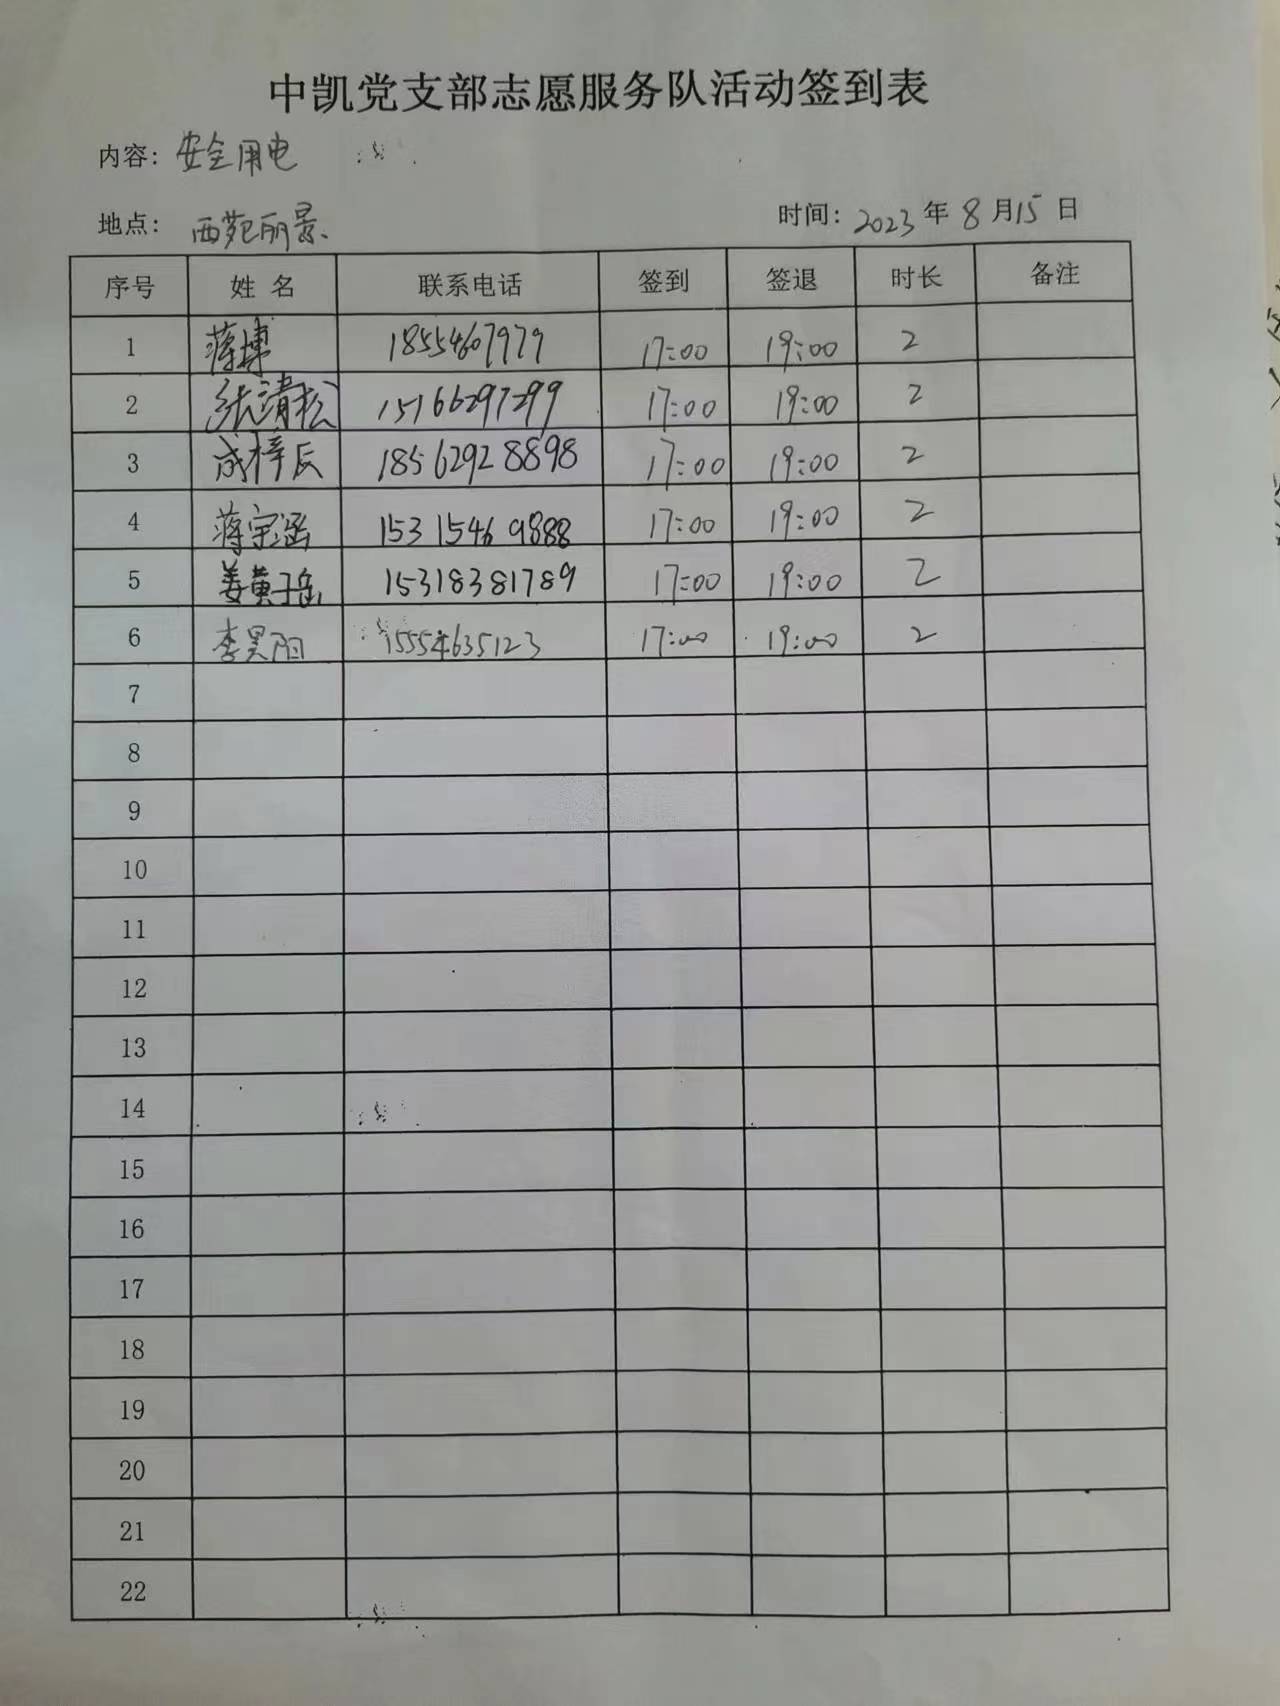 中凯党支部志愿服务队活动签到表
内容: 安全用电
地点: 西苑丽景. 时间: 2023 年 8 月 15 日
序号 姓 名 联系电话 签到 签退 时长 备注
1 蒋博 18554607979 17:00 19:00 2
2 张清松 15166297299 17:00 19:00 2
3 成梓辰 18562928898 17:00 19:00 2
4 蒋宇涵 15315469888 17:00 19:00 2
5 姜黄子岳 15318381789 17:00 19:00 2
6 李昊阳 15554635123 17:00 19:00 2
7
8
9
10
11
12
13
14
15
16
17
18
19
20
21
22